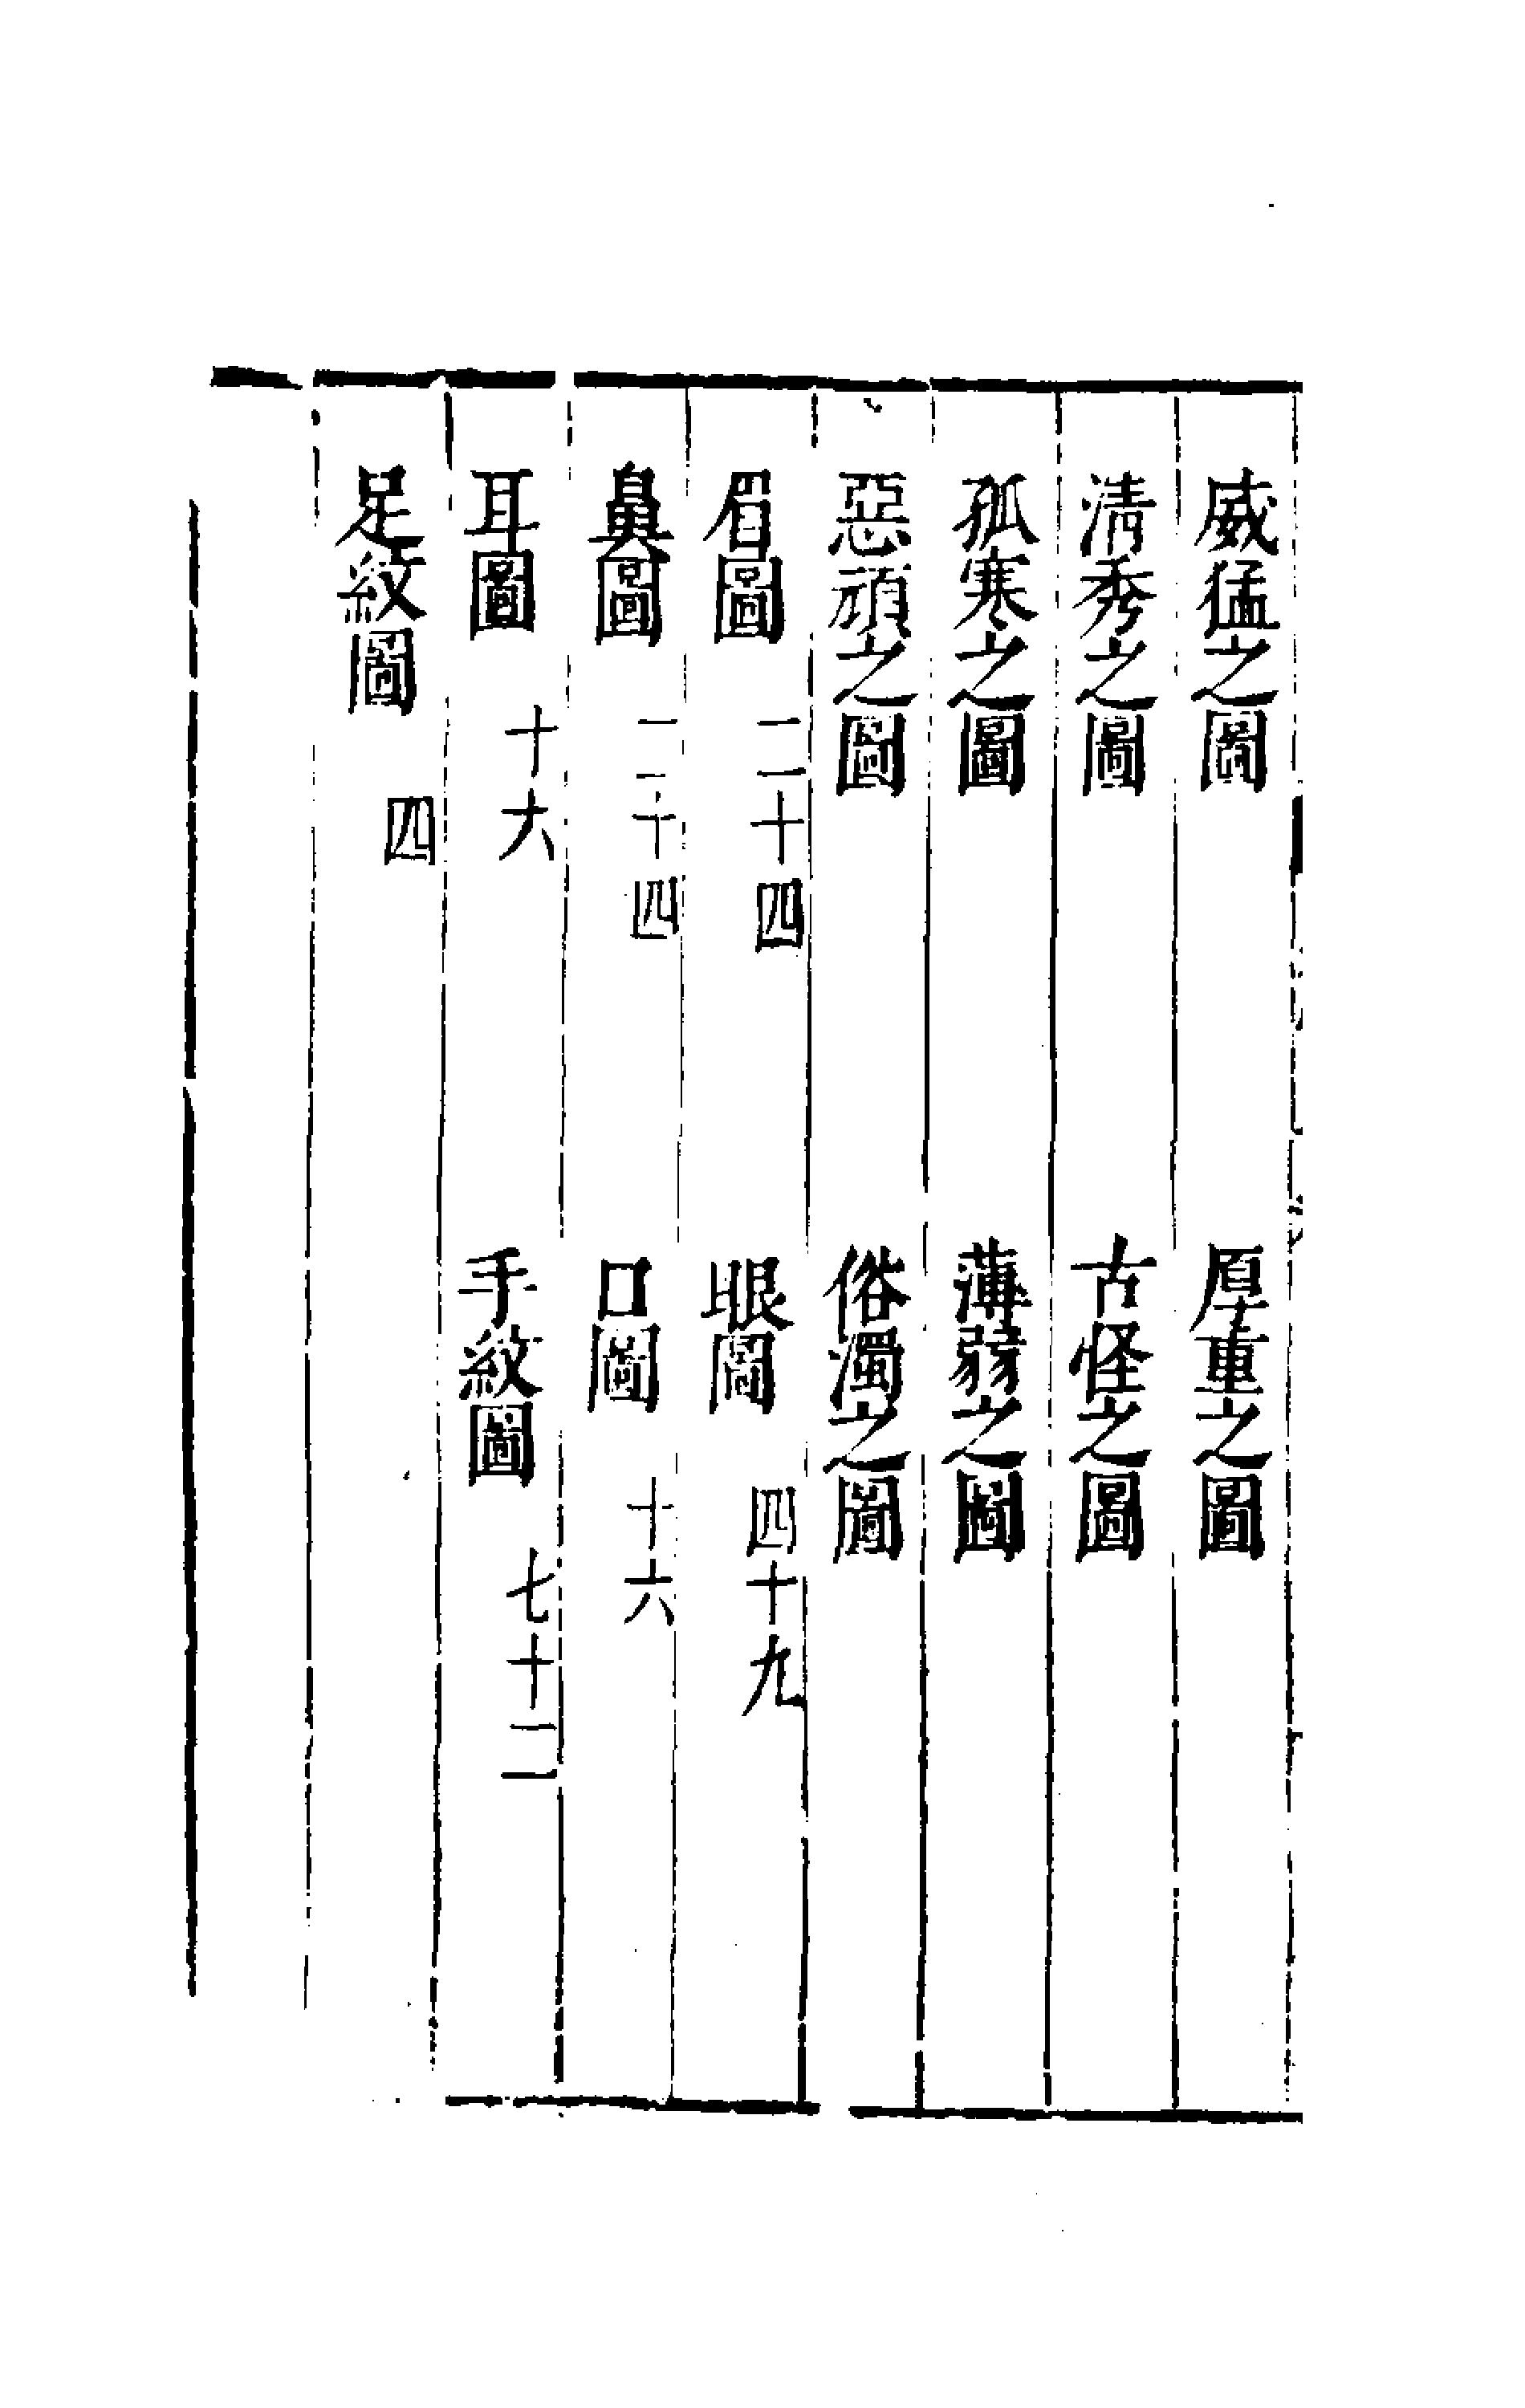 威猛之圖　厚重之圖
清秀之圖　古怪之圖
孤寒之圖　薄弱之圖
惡頑之圖　俗濁之圖
眉圖　二十四　眼圖　四十九
鼻圖　二十四　口圖　十六
耳圖　十六　手紋圖　七十二
足紋圖　四